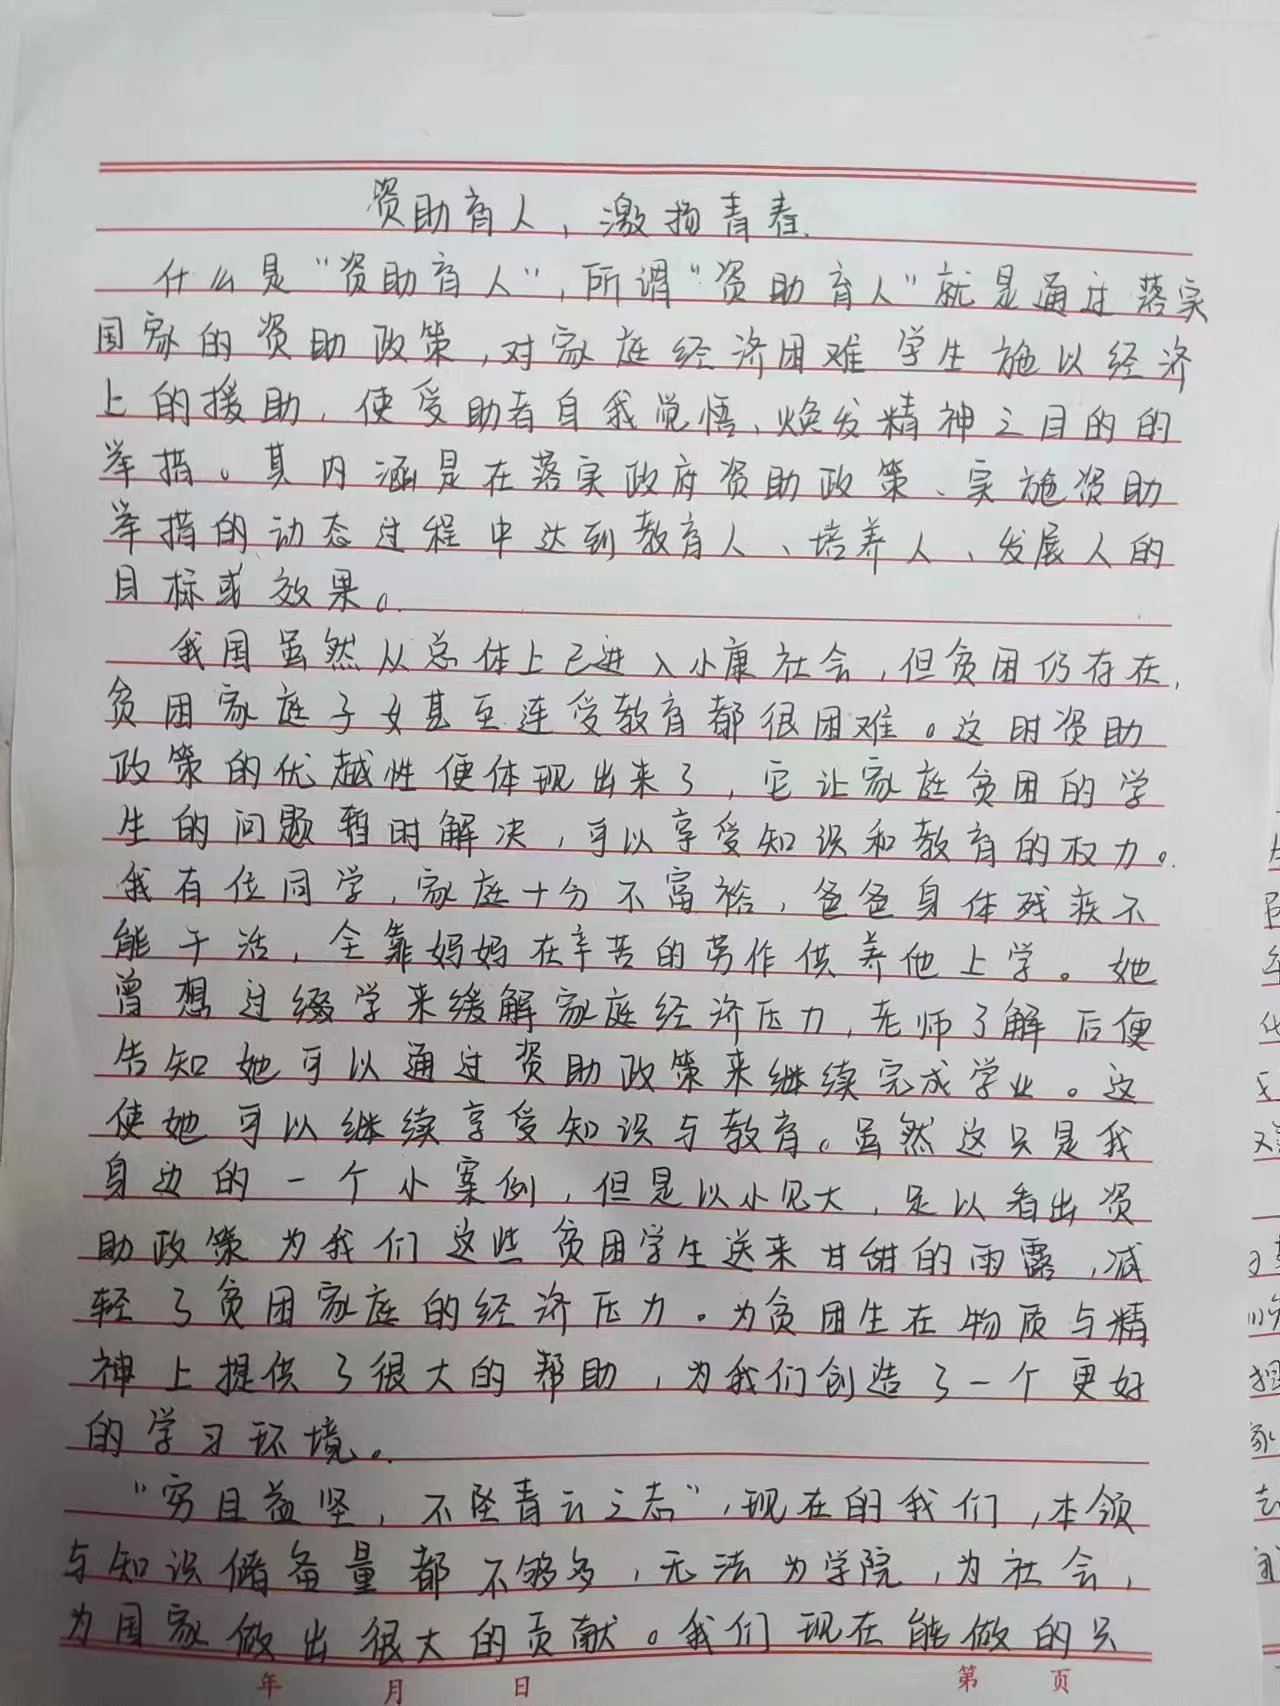 资助育人，激扬青春.
什么是“资助育人”，所谓“资助育人”就是通过落实
国家的资助政策，对家庭经济困难学生施以经济
上的援助，使受助者自我觉悟、焕发精神之目的的
举措。其内涵是在落实政府资助政策、实施资助
举措的动态过程中达到教育人、培养人、发展人的
目标或效果。
我国虽然从总体上已进入小康社会，但贫困仍存在，
贫困家庭子女甚至连受教育都很困难。这时资助
政策的优越性便体现出来了，它让家庭贫困的学
生的问题暂时解决，可以享受知识和教育的权力。
我有位同学，家庭十分不富裕，爸爸身体残疾不
能干活，全靠妈妈在辛苦的劳作供养他上学。她
曾想过缀学来缓解家庭经济压力，老师了解后便
告知她可以通过资助政策来继续完成学业。这
使她可以继续享受知识与教育。虽然这只是我
身边的一个小案例，但是以小见大，足以看出资
助政策为我们这些贫困学生送来甘甜的雨露，减
轻了贫困家庭的经济压力。为贫困生在物质与精
神上提供了很大的帮助，为我们创造了一个更好
的学习环境。
“穷且益坚，不坠青云之志”，现在的我们，本领
与知识储备量都不够多，无法为学院，为社会，
为国家做出很大的贡献。我们现在能做的只
年 月 日 第 页